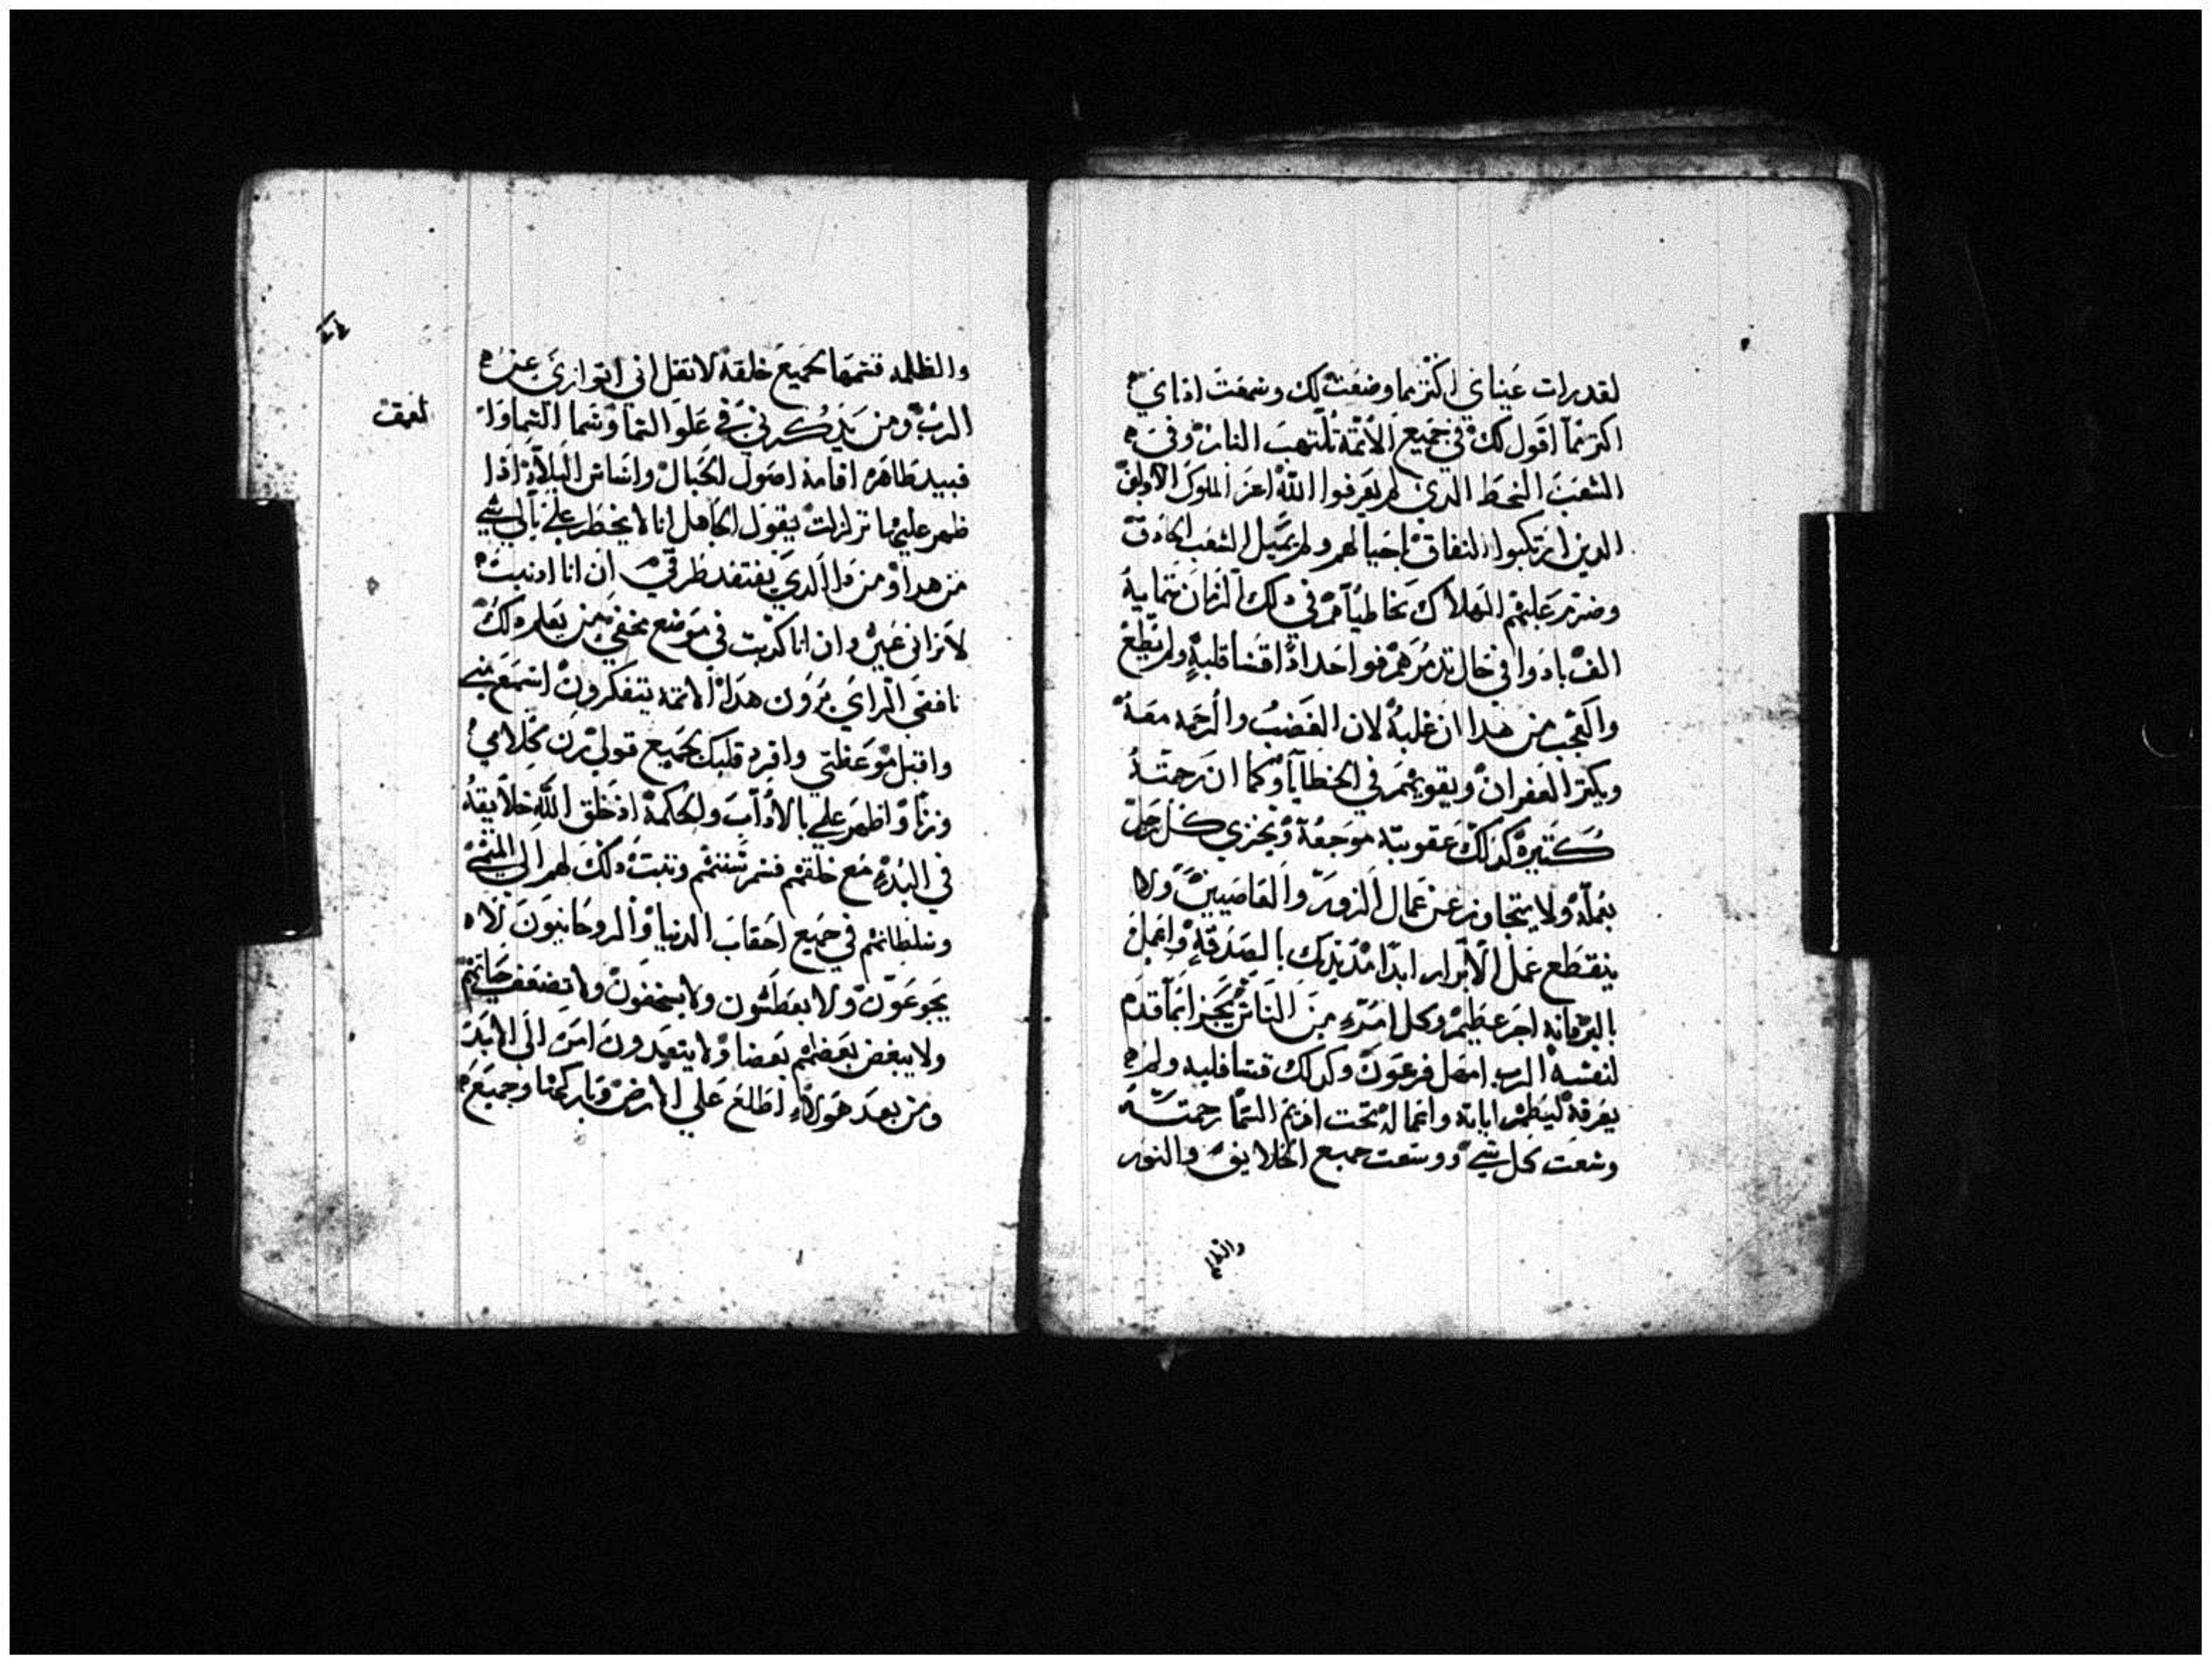 لقد رات عيناي اكتر مما وضعت لك وسمعت اذناي
اكتر مما اقول لك في جميع الأئمة تلتهب النار وفي
الشعب السخط الدي لم يعرفوا الله اعز الملوك الاولين
الدين ارتكبوا النفاق باجيالهم ولم يميل الشعب
وضرم عليهم الهلاك بخاطياهم في دلك الزمان تمايه
الف بادوا في حال تدمرهم فواحدا ادا قسا قلبه ولم يطع
والعجب من هدا ان غلبه لان الغضب والرحمه معه
ويكتر الغفران ويقويهم في الخطايا وكما ان رحمته
كتيره كدلك عقوبته موجعه ويجزي كل رجل
بعمله ولا يتجاوز عن عمال الزور والعاصيين ولا
ينقطع عمل الابرار ابدا بالصدقه واعمل
بالبر فانه اجر عظيم وكل امرء من الناس يجزا بما قدم
لنفسه الرب امهل فرعون وكدلك قسا قلبه ولم
يعرفه ليظهر اياته واعماله تحت اديم السما رحمته
وسعت كل شي ووسعت جميع الخلايق والنور
والظلم
والظلمه قسمها بجميع خلقه لا تقل اني اتوارى عن
الرب ومن يدكرني في علو السما وسما السماوات
فبيد طاهره اقامة اصول الجبال واساس البلاد ادا
ظهر عليها تزلزلت يقول الجاهل انا لا يخطر علي بالي شي
من هدا ومن دا الدي يفتقد طرقي ان انا ادنبت
لا تراني عين وان انا كدبت في موضع مخفي من يعلم دلك
ناقصي الراي يرون هدا الائمه يتفكرون اسمع مني
واقبل موعظتي وافرد قلبك بجميع قولي زن كلامي
وزنا واظهر علي بالاداب والحكمة اد خلق الله خلايقه
في البدء مع خلقهم قسم سننهم وتبت دلك لهم الي المنتهى
وسلطانهم في جميع احقاب الدنيا والروحانيون لا
يجوعون ولا يعطشون ولا يسخفون ولا تضعف حياتهم
ولا يبغض بعضهم بعضا ولا يتعدون امره الى الابد
ومن بعد هولاء اطلع على الارض وباركها وجميع